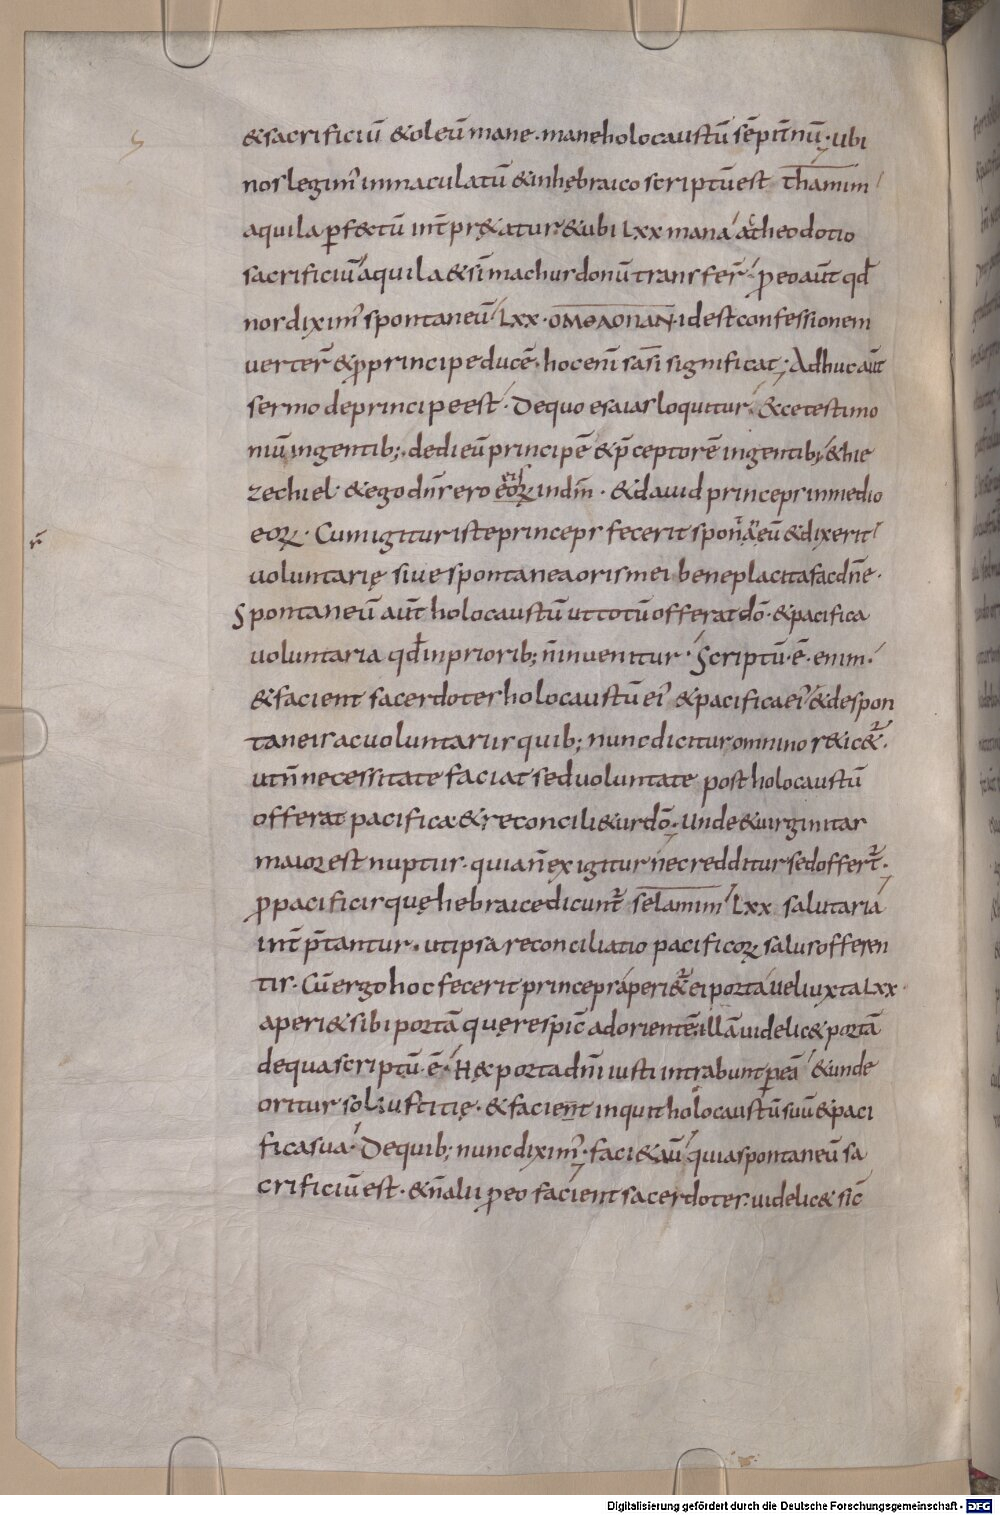 &sacrificiū &oleū mane · mane holocaustū sēpit̄nū; ubi
nos legim' inmaculatū & in hębraico scriptū est thamim
aquila ꝑf&ctū int̄pr&atur & ubi Lxx mana actheodotio
sacrificiū aquila & sīmachus donū transfer̄ · ꝓ eo aūt qd̄
nos dixim' spontaneū Lxx · OMOΛΟΠΑΝ · id est confessionem
verter̄ & ꝓ principe ducē · hoc enī sasi significat; Adhuc aūt
sermo de principe est · De quo esaias loquitur · &ce testimo
niū in gentib; · dedi eū principē & p̄ceptorē in gentib; & hie
zechiel & ego dn̄s ero eoꝝ eis in dm̄ · & dauid princeps in medio
eoꝝ · Cum igitur iste princeps fecerit spontaneū & dixerit
uoluntarię siue spontanea oris mei beneplacita fac dn̄e ·
Spontaneū aūt holocaustū ut totū offerat dō · & pacifica
uoluntaria qd̄ in priorib; n̄ inuenitur · Scriptū · ē · enim ·
& facient sacerdotes holocaustū ei' & pacifica ei' & de spon
taneis ac uoluntariis quib; nunc dicitur omnino r&ic&ur ·
ut n̄ necessitate faciat sed uoluntate post holocaustū
offerat pacifica & reconcili&ur dō · Unde & uirginitas
maior est nuptiis · quia n̄ exigitur nec redditur sed offert̄ ·
ꝓ pacificis quę hebraice dicunt̄ selamim Lxx salutaria
int̄p̄tantur · ut ipsa reconciliatio pacificoꝝ salus offeren
tis · Cū ergo hoc fecerit princeps aperi&ur ei porta uel iuxta Lxx
aperi& sibi portā quę respic̄ ad orientē illā uidelic& portā
de qua scriptū · ē · Hęc porta dn̄i iusti intrabunt ꝑ eā & unde
oritur sol iustitię · & facient inquit holocaustū suū & paci
fica sua · De quib; nunc dixim' · faci& aū quia spontaneū sa
crificiū est · & n̄ alii ꝓ eo facient sacerdotes · uidelic& sic̄
Digitalisierung gefördert durch die Deutsche Forschungsgemeinschaft · DFG